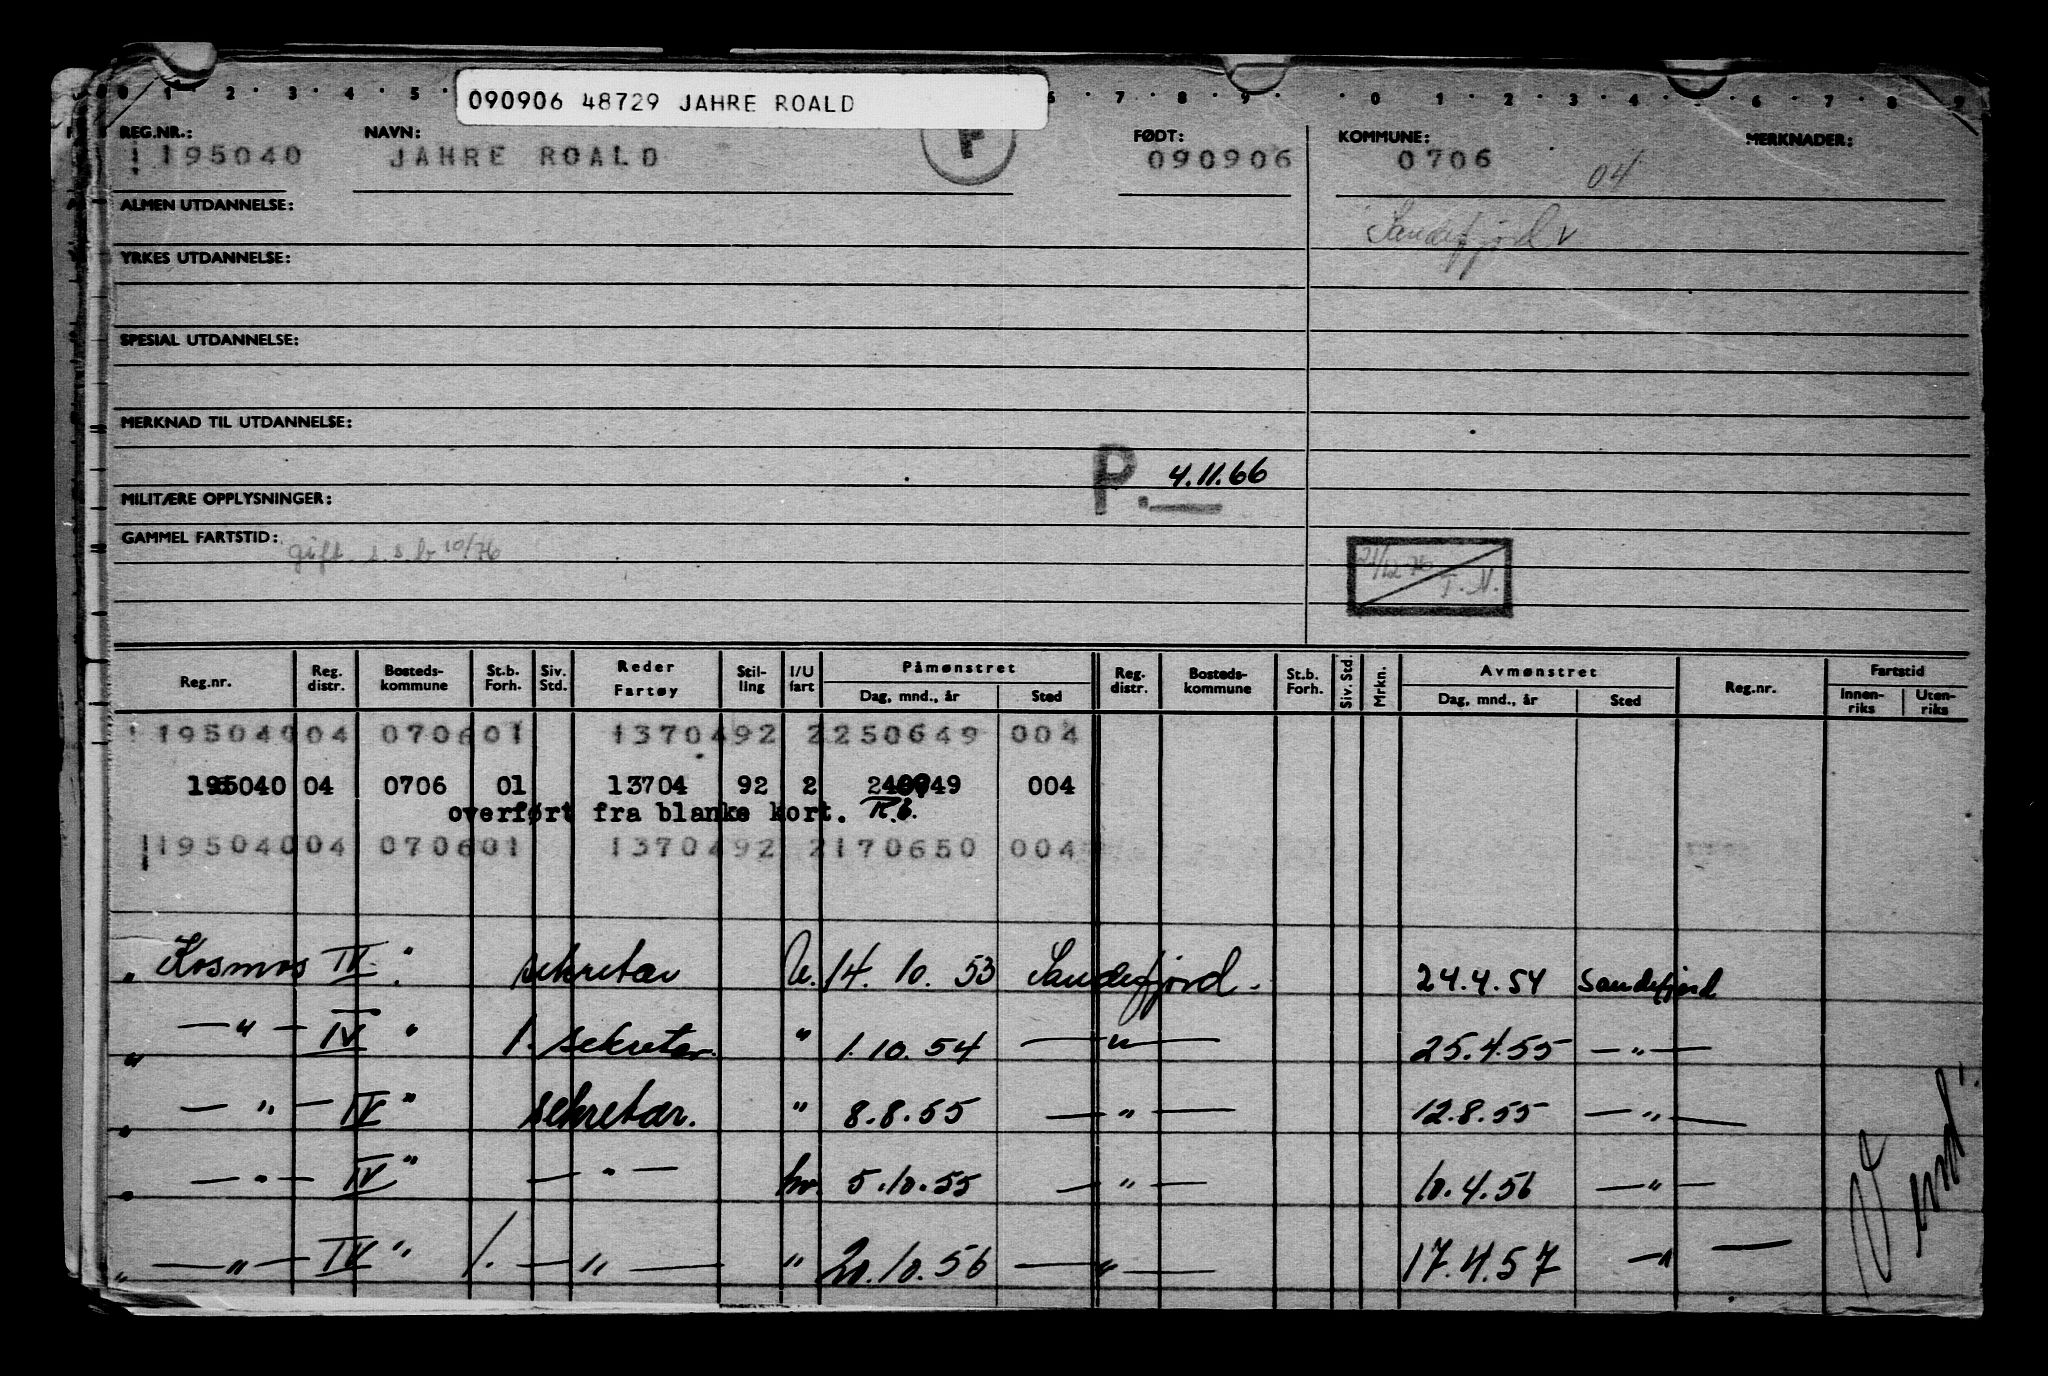 0 1 2 3 4 5 6 7 8 9 0 1 2 3 4 5 6 7 8 9
090906 48729 JAHRE ROALD
REG.NR.: NAVN: FØDT: KOMMUNE: MERKNADER:
195040 JAHRE ROALD F 090906 0706 04
ALMEN UTDANNELSE: Sandefjord
YRKES UTDANNELSE:
SPESIAL UTDANNELSE:
MERKNAD TIL UTDANNELSE:
P. 4.11.66
MILITÆRE OPPLYSNINGER:
GAMMEL FARTSTID: gift 10/76
21/12 76 T.M.
Reg.nr. Reg. distr. Bosteds-kommune St.b. Forh. Siv. Std. Reder Fartøy Stil-ling I/U fart Påmønstret Dag, mnd., år Sted Reg. distr. Bosteds-kommune St.b. Forh. Siv. Std. Mrkn. Avmønstret Dag, mnd., år Sted Reg.nr. Fartstid Innen-riks Uten-riks
195040 04 0706 01 13704 92 2 250649 004
195040 04 0706 01 13704 92 2 49 004
overført fra blanke kort.
195040 04 0706 01 13704 92 2 170650 004
"Kosmos IV" sekretær U. 14.10.53 Sandefjord. 24.4.54 Sandefjord
" —"— IV" 1. sekretær. " 1.10.54 —"— 25.4.55 —"—
" —"— IV" sekretær. " 8.8.55 —"— 12.8.55 —"—
" —"— IV" —"— hv. 5.10.55 —"— 10.4.56 —"—
" —"— IV" 1. —"— " 20.10.56 —"— 17.4.57 —"—